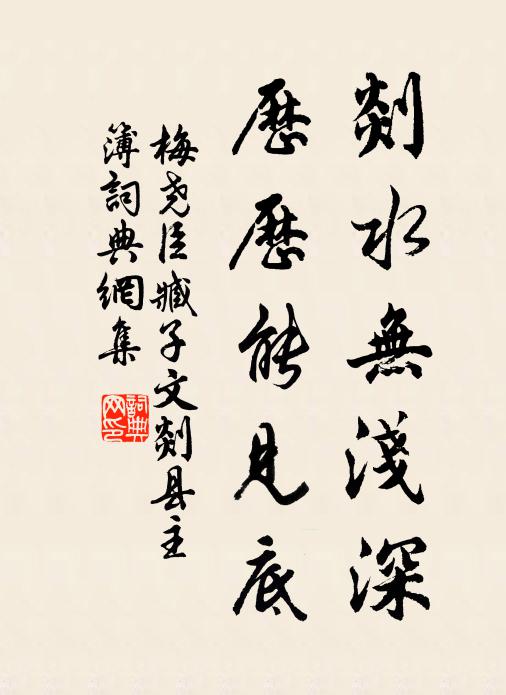 剡水無淺深
歷歷能見底
梅尧臣臧子文剡县主
簿詞典網集
詞典
网印